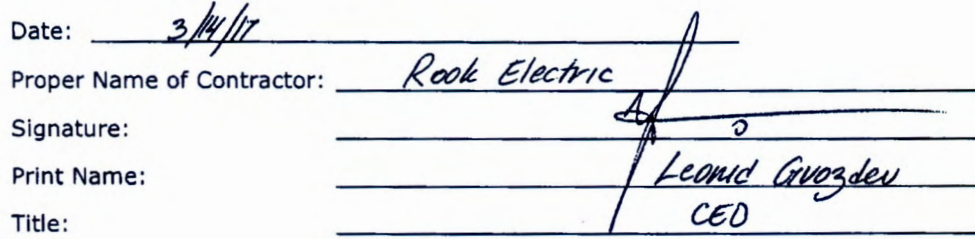 Date: 3/14/17
Proper Name of Contractor: Rook Electric
Signature:
Print Name: Leonid Gvozdev
Title: CEO